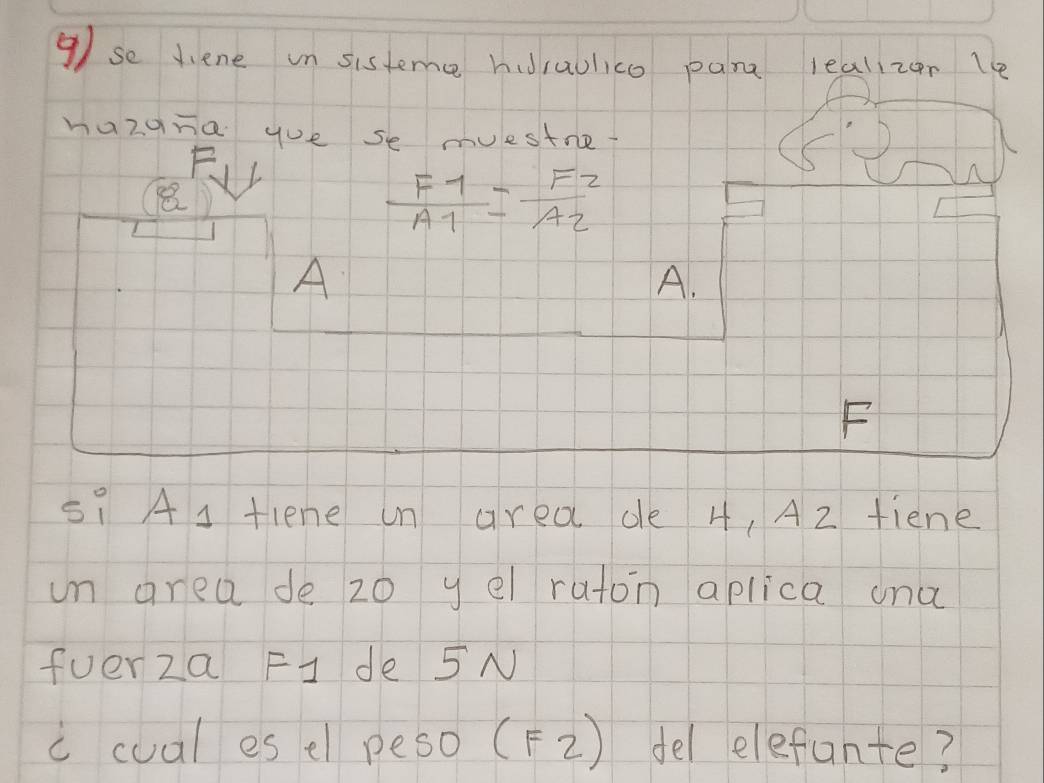 9) se tiene un sistema hidraulico para realizar la
hazaña que se muestra-
F1
F1/A1 = F2/A2
A
A.
F
si A1 tiene un area de 4, A2 tiene
un area de 20 y el ratón aplica una
fuerza F1 de 5N
¿ cual es el peso (F2) del elefante?